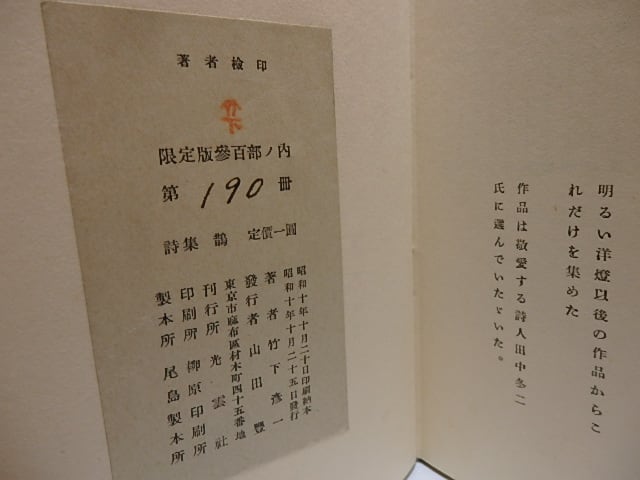 明るい洋燈以後の作品からこ
れだけを集めた
作品は敬愛する詩人田中冬二
氏に選んでいたゞいた。
著者檢印
限定版參百部ノ內
第 190 冊
詩集 鵲 定價一圓
昭和十年十月二十日印刷納本
昭和十年十月二十五日發行
著者 竹下彥一
發行者 山田豐
東京市麻布區材木町四十五番地
刊行所 光雲社
印刷所 柳原印刷所
製本所 尾島製本所